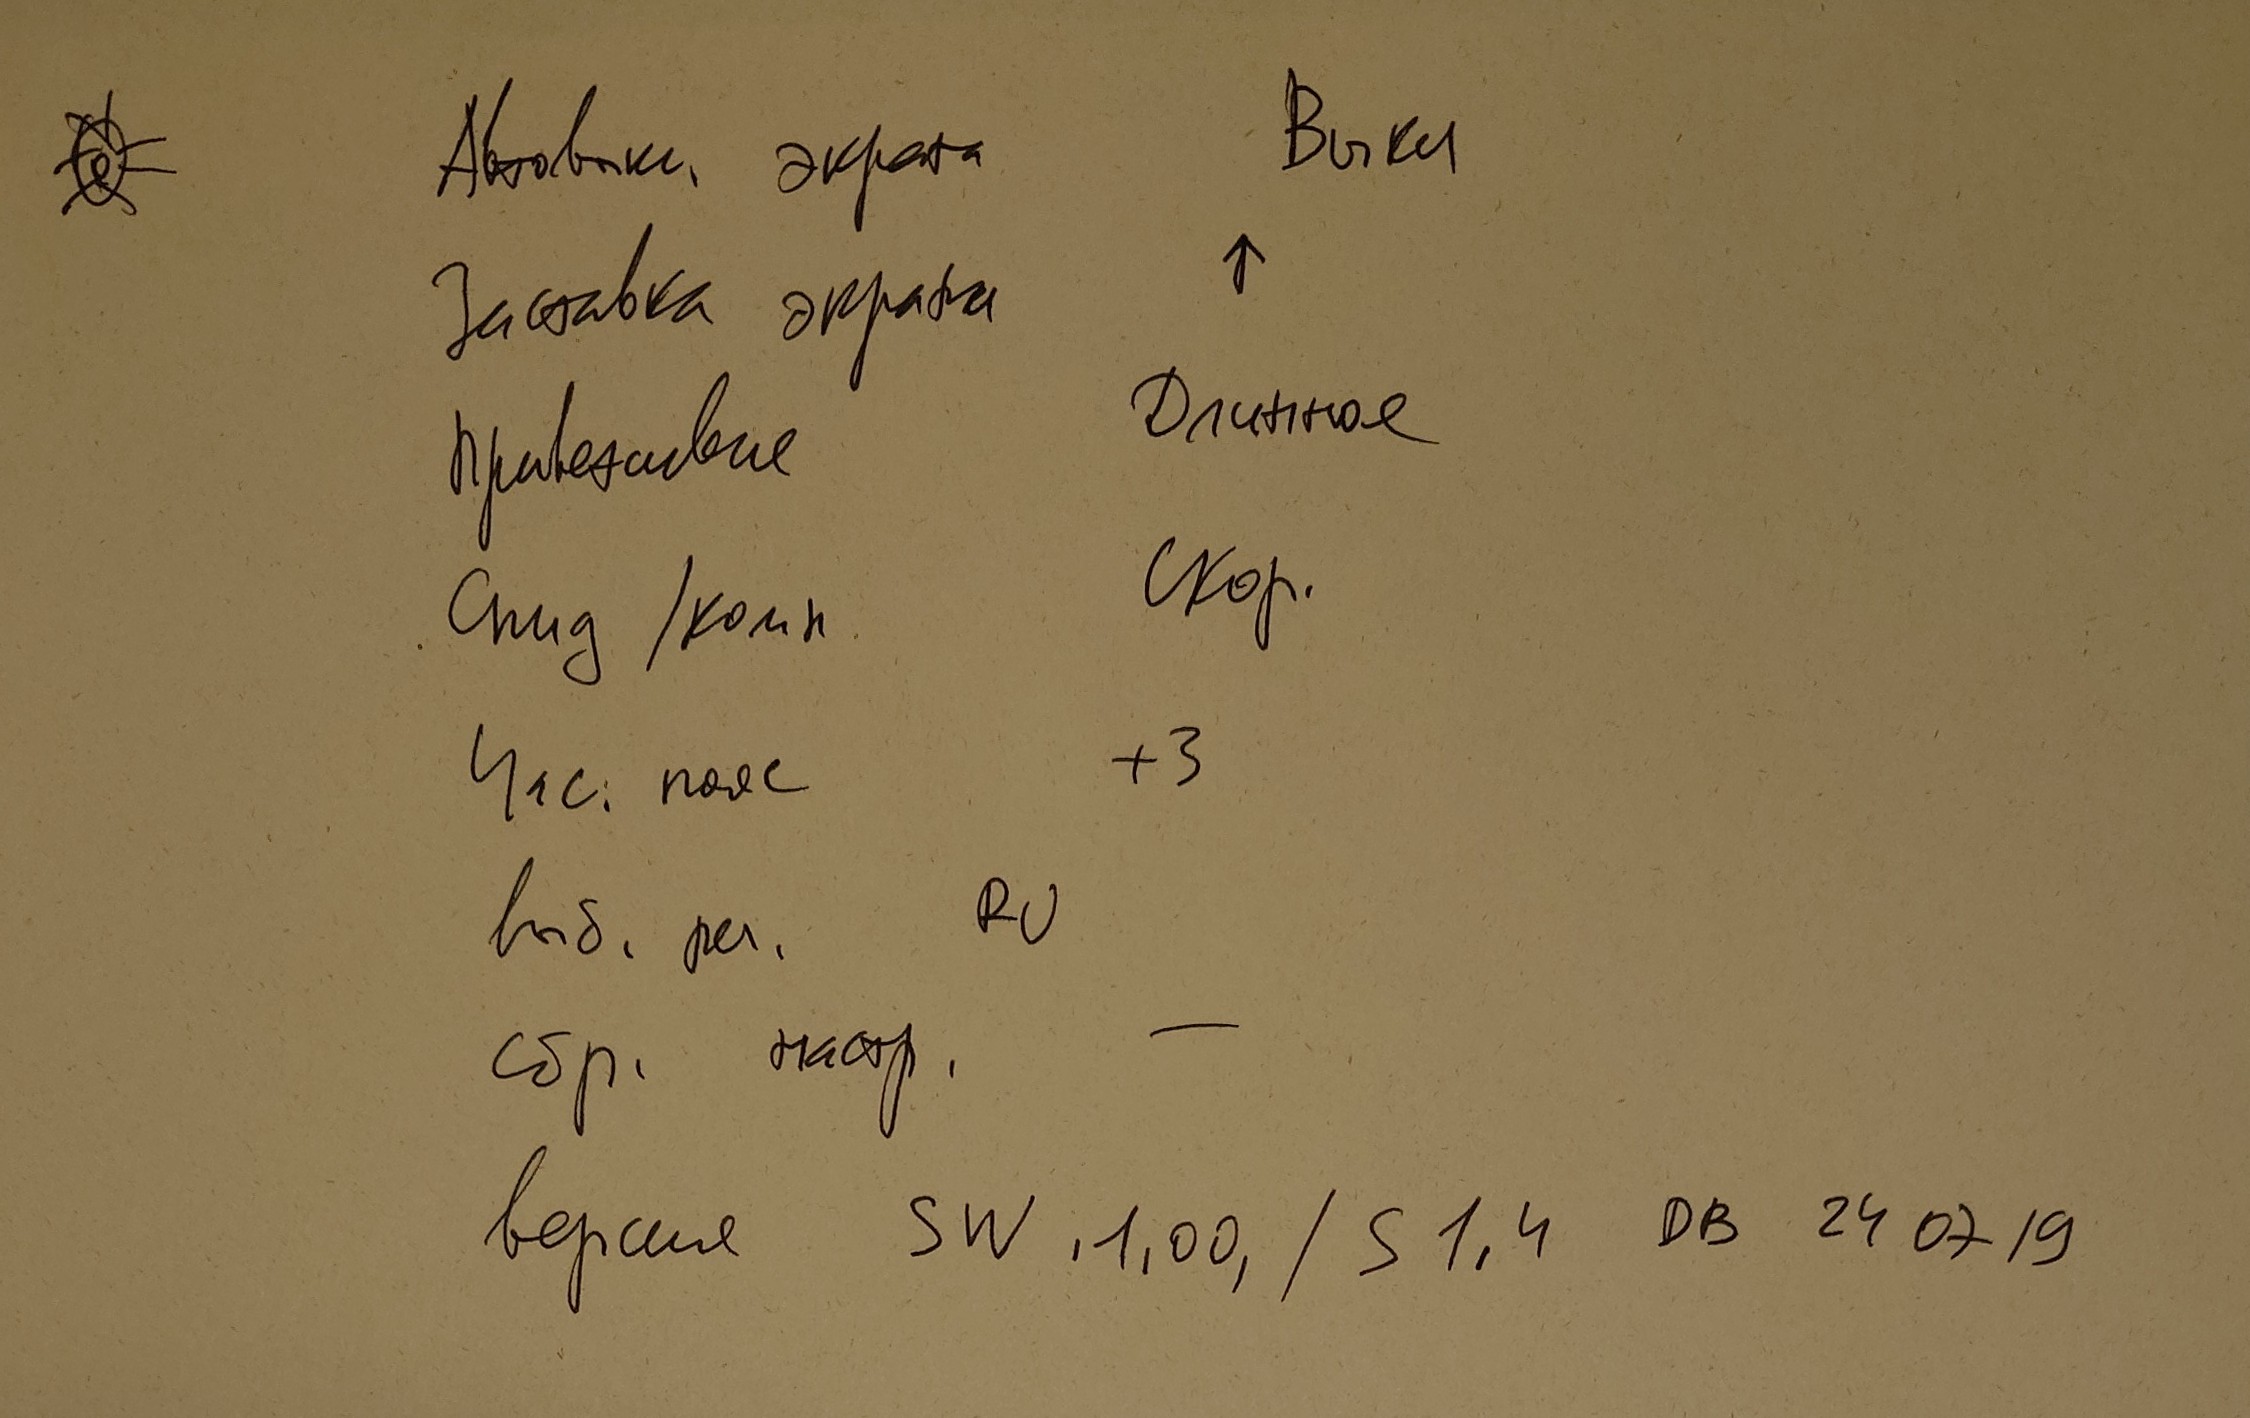 Автовыкл. экрана Выкл
Заставка экрана ↑
Приветствие Длинное
Спид /комп Скор.
Час. пояс +3
Выб. рег. RU
сбр. настр. —
Версия SW .1,00, / S 1,4 DB 24 07 19